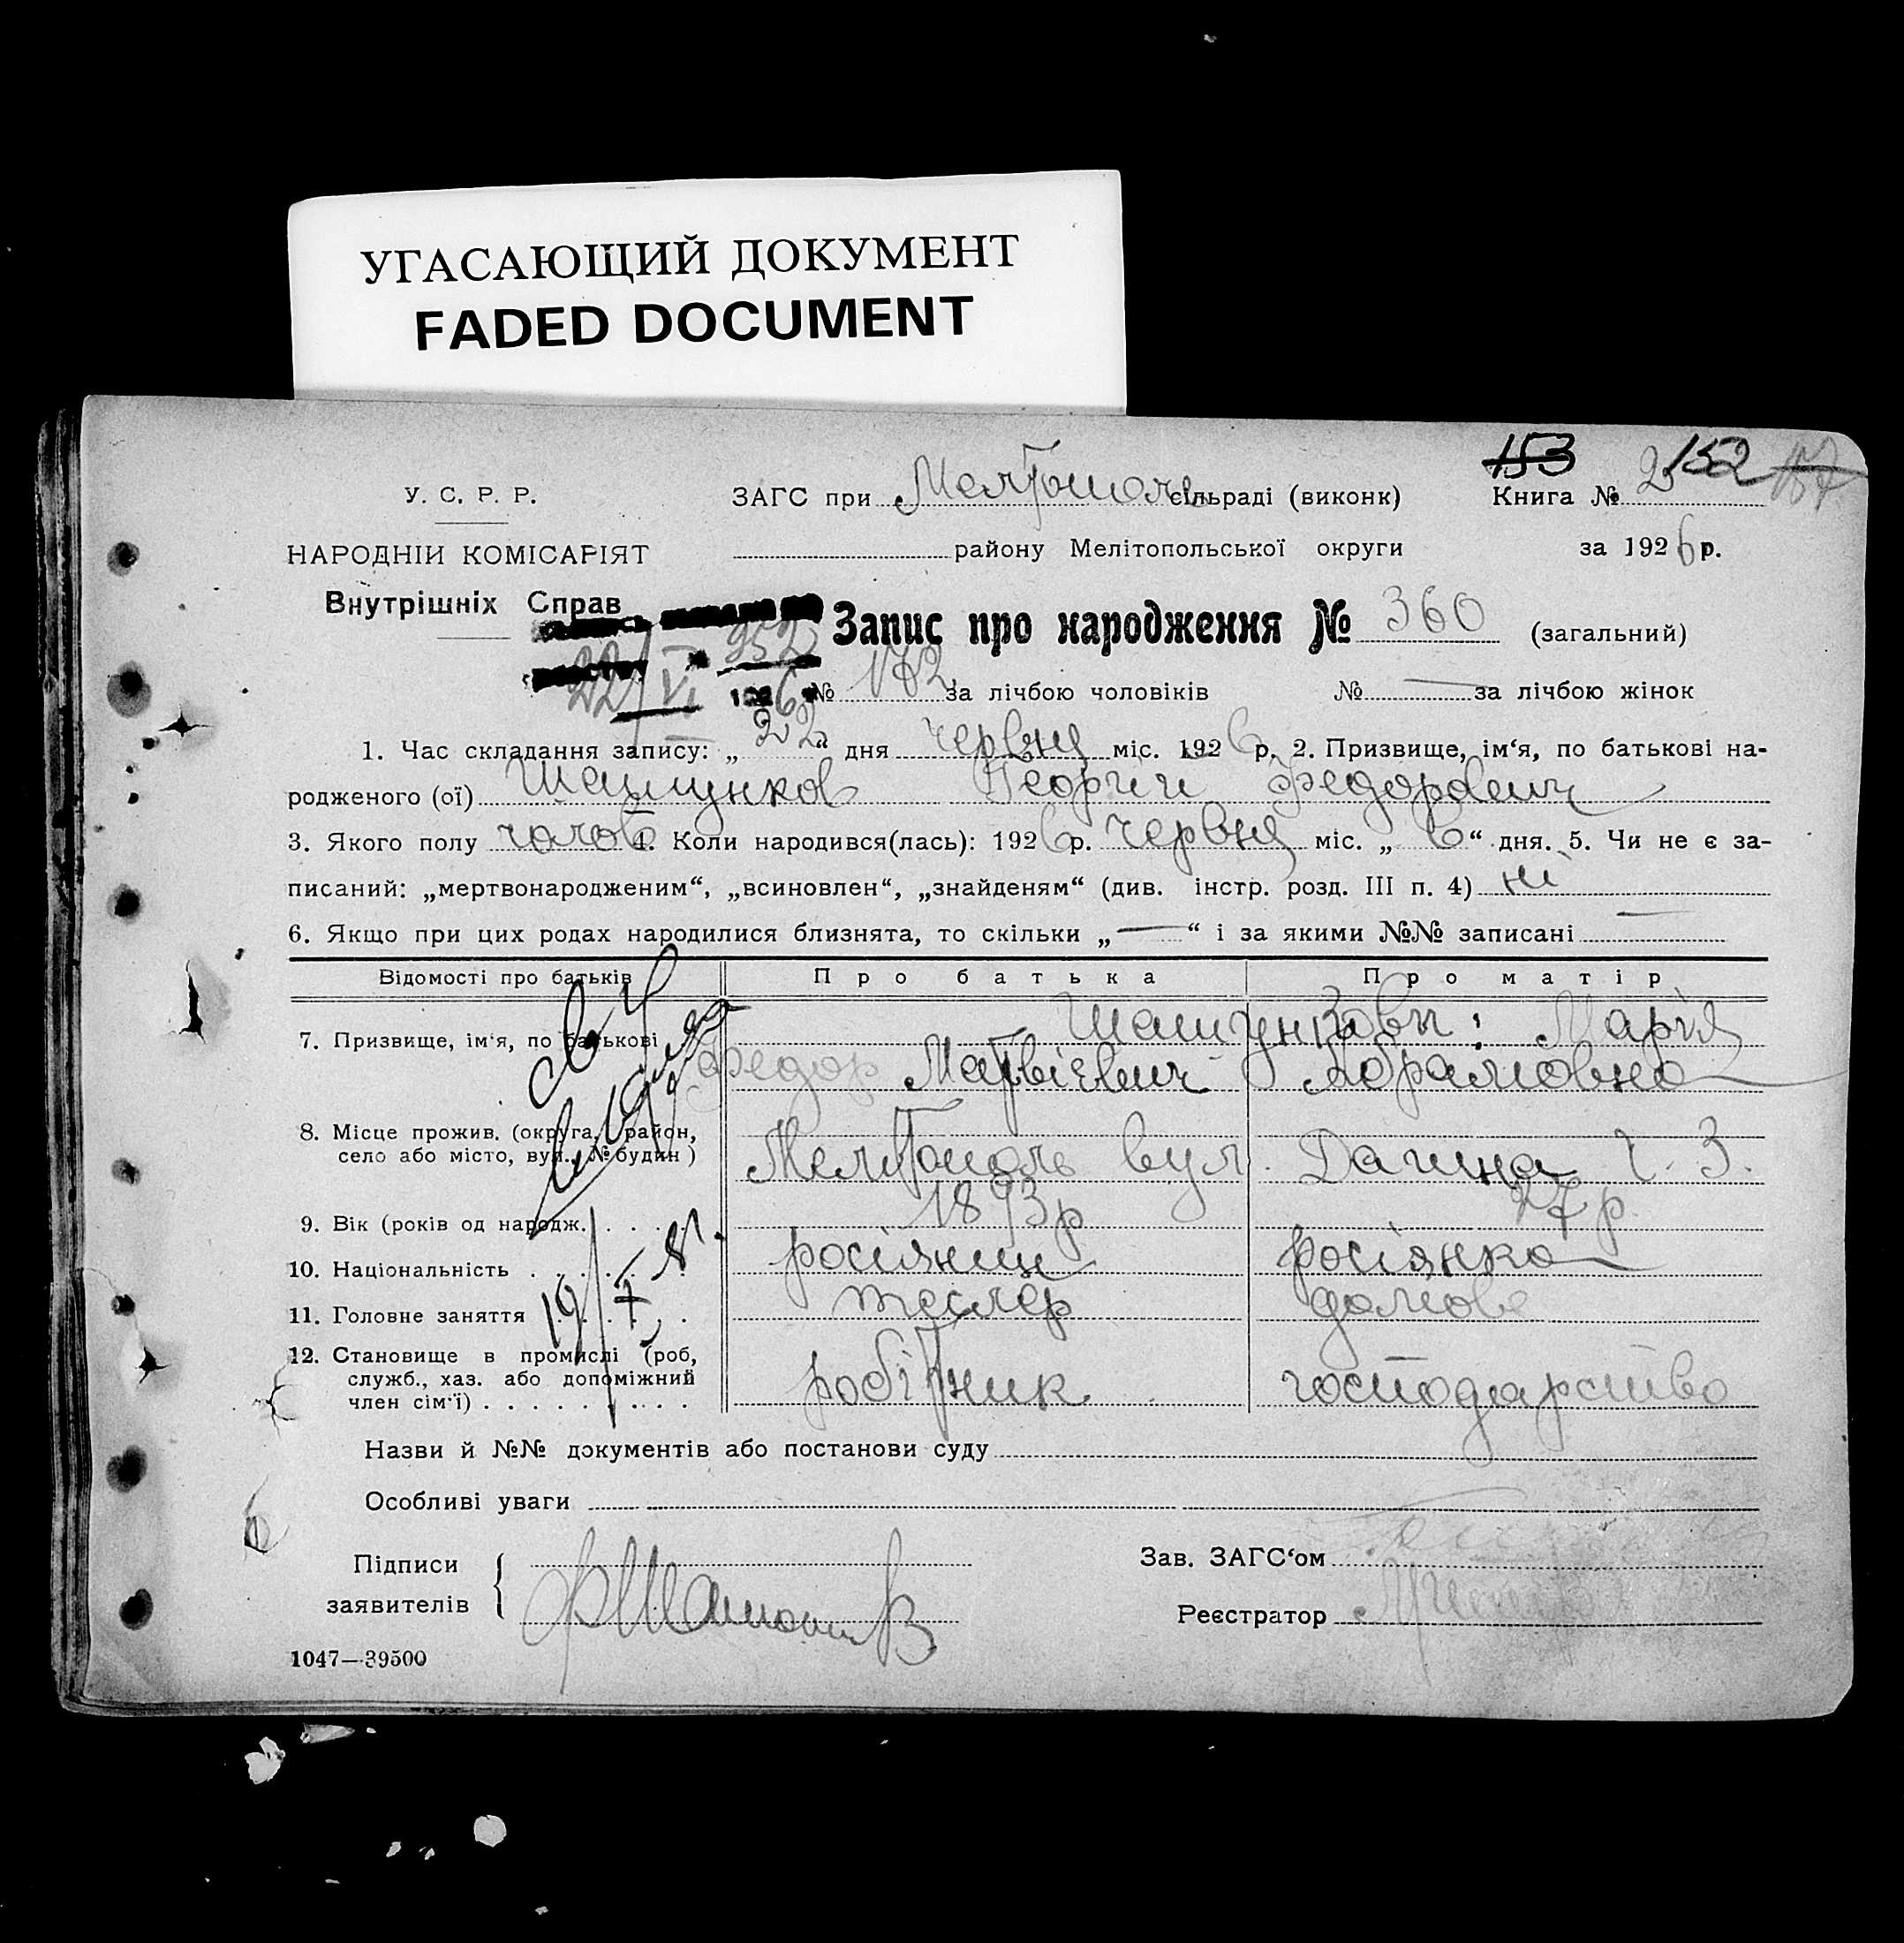 УГАСАЮЩИЙ ДОКУМЕНТ
FADED DOCUMENT
153 2 152 157
У. С. Р. Р. ЗАГС при Мелітополь сільраді (виконк) Книга №
НАРОДНІЙ КОМІСАРІЯТ району Мелітопольської округи за 1926 р.
Внутрішніх Справ
952 Запис про народження № 360 (загальний)
22/VI 1926 № 182 за лічбою чоловіків № — за лічбою жінок
1. Час складання запису: „22“ дня червня міс. 1926 р. 2. Призвище, ім‘я, по батькові на-
родженого (ої) Георгій Федорович
3. Якого полу чолов 4. Коли народився(лась): 1926 р. червня міс. „6“ дня. 5. Чи не є за-
писаний: „мертвонародженим“, „всиновлен“, „знайденям“ (див. інстр. розд. III п. 4) ні
6. Якщо при цих родах народилися близнята, то скільки „—“ і за якими №№ записані —
Відомості про батьків Про батька Про матір
7. Призвище, ім‘я, по батькові Марія
Федор Матвієвич Абрамовна
8. Місце прожив. (округа, район,
село або місто, вул., № будин) Мелітополь вул. ч. 3.
9. Вік (років од народж. . . . . 1893 р 27 р.
10. Національність . . . . . . росіянин росіянка
11. Головне заняття . . . . . тесляр домове
12. Становище в промислі (роб,
служб., хаз. або допоміжний
член сім‘ї) . . . . . . . . . робітник господарство
Назви й №№ документів або постанови суду
Особливі уваги
Підписи Зав. ЗАГС‘ом
заявителів Реєстратор
1047—39500